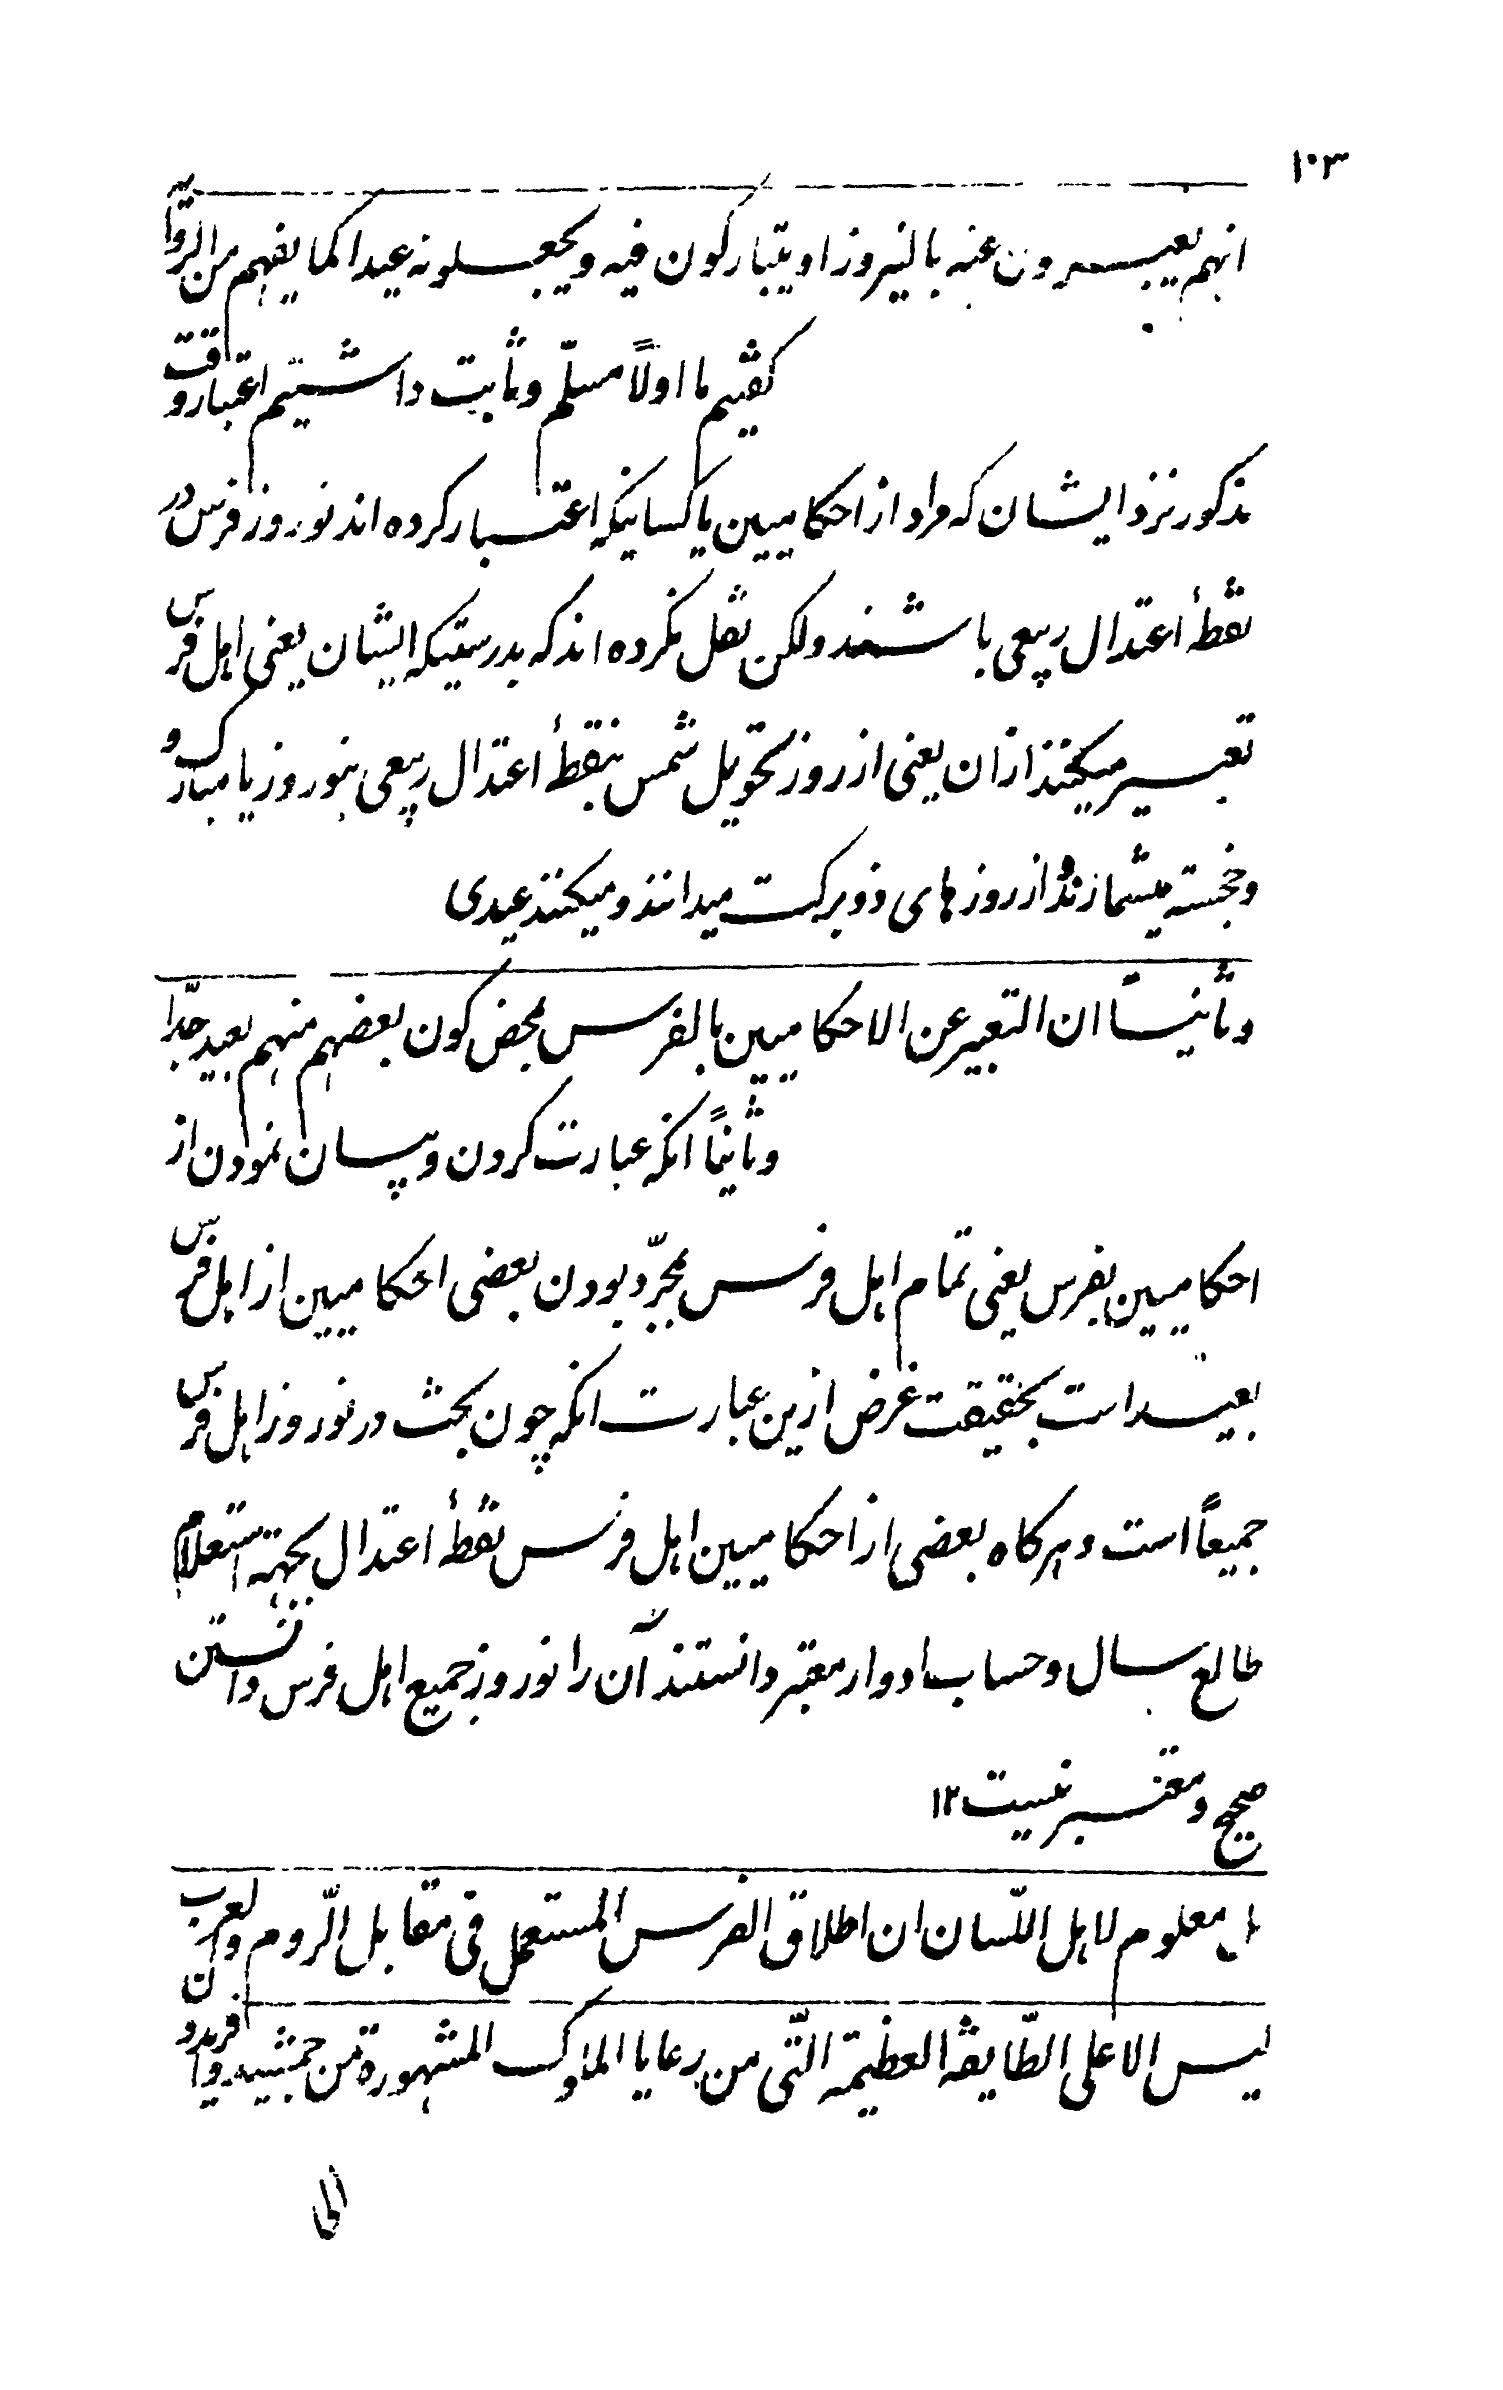 ١٠٣
انهم يعبرون عنه بالنيروز او يتباركون فيه ويجعلونه عيدا كما يفهم من الرّواية
كفتيم ما اولاً مسلّم وثابت داشتيم اعتبار وقت
مذكور نزد ايشان كه مراد از احكاميين يا كسانيكه اعتبار كرده اند نوروز فرس در
نقطهٔ اعتدال ربيعى باشند ولكن نقل نكرده اند كه بدرستيكه ايشان يعنى اهل فرس
تعبير ميكنند ازان يعنى از روز تحويل شمس بنقطهٔ اعتدال ربيعى بنوروز يا مبارك و
وخجسته ميشمارند و از روزهاى ذو بركت ميدانند و ميكنند عيدى
وثانيًا ان التعبير عن الاحكاميين بالفرس بمحض كون بعضهم منهم بعيد جدّا
وثانياً انكه عبارت كردن و بيان نمودن از
احكاميين بفرس يعنى تمام اهل فرس بمجرّد بودن بعضى احكاميين از اهل فرس
بعيد است بحقيقت غرض ازين عبارت انكه چون بحث در نوروز اهل فرس
جميعاً است و هركاه بعضى از احكاميين اهل فرس نقطهٔ اعتدال بجهته استعلام
طالع سال و حساب ادوار معتبر دانستند آن را نوروز جميع اهل فرس دانستن
صحيح و معتبر نيست ١٢
بل معلوم لاهل اللّسان ان اطلاق الفرس المستعمل فى مقابل الرّوم والعرب
ليس الا على الطّايفة العظيمة التّى من رعايا الملوك المشهورة من جمشيد وافريدون
الى